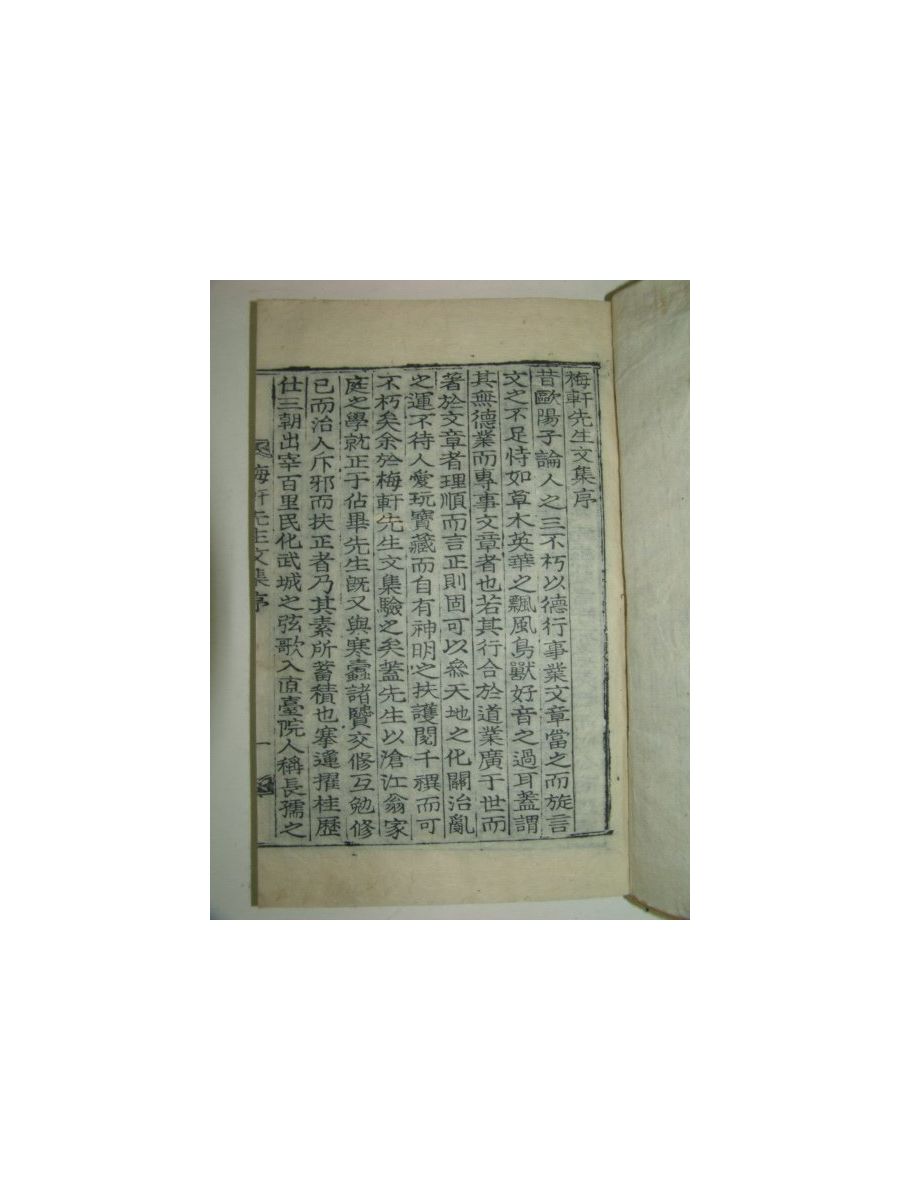 梅軒先生文集序
昔歐陽子論人之三不朽以德行事業文章當之而旋言
文之不足恃如草木英華之飄風鳥獸好音之過耳蓋謂
其無德業而專事文章者也若其行合於道業廣于世而
著於文章者理順而言正則固可以叅天地之化關治亂
之運不待人愛玩寶藏而自有神明之扶護閱千禩而可
不朽矣余於梅軒先生文集驗之矣蓋先生以滄江翁家
庭之學就正于佔畢先生旣又與寒蠹諸賢交修互勉修
已而治人斥邪而扶正者乃其素所蓄積也蹇運擢桂歷
仕三朝出宰百里民化武城之弦歌入直臺院人稱長孺之
梅軒先生文集序
一